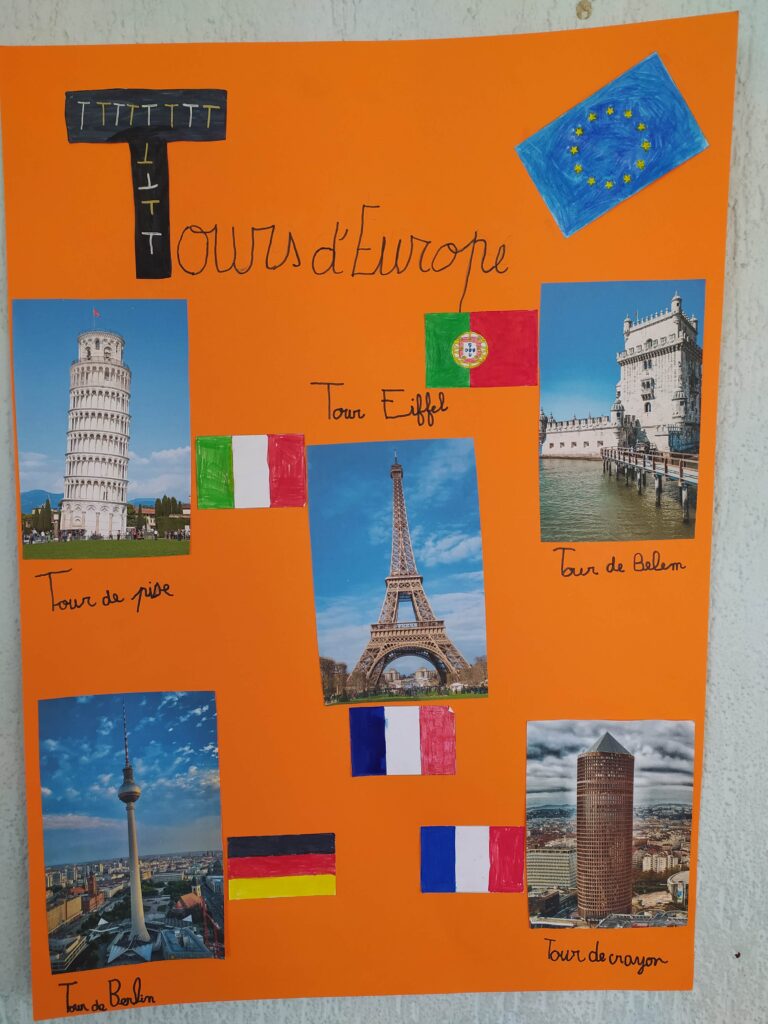 T T T T T T T T
T
T
T
T
Tours d'Europe
Tour Eiffel
Tour de pise
Tour de Belem
Tour de Berlin
Tour de crayon